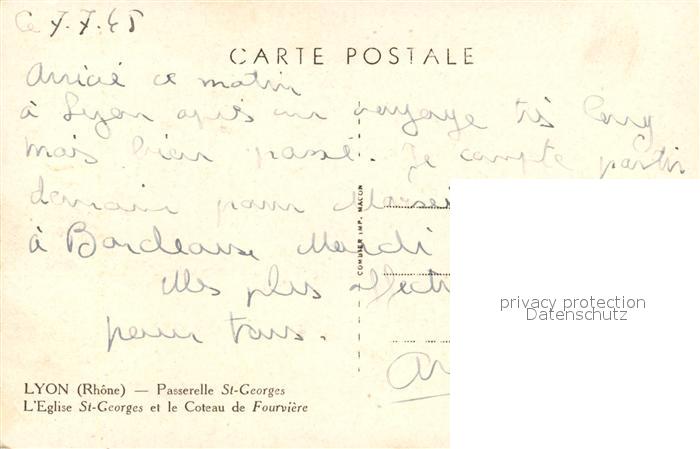 Ce 7.7.45
CARTE POSTALE
Arrivé ce matin
à Lyon après un voyage très long
mais bien passé. Je compte partir
demain pour Marsei
à Bordeaux Mardi
Mes plus affect
pour tous.
COMBIER IMP. MACON
privacy protection
Datenschutz
LYON (Rhône) — Passerelle St-Georges
L'Eglise St-Georges et le Coteau de Fourvière